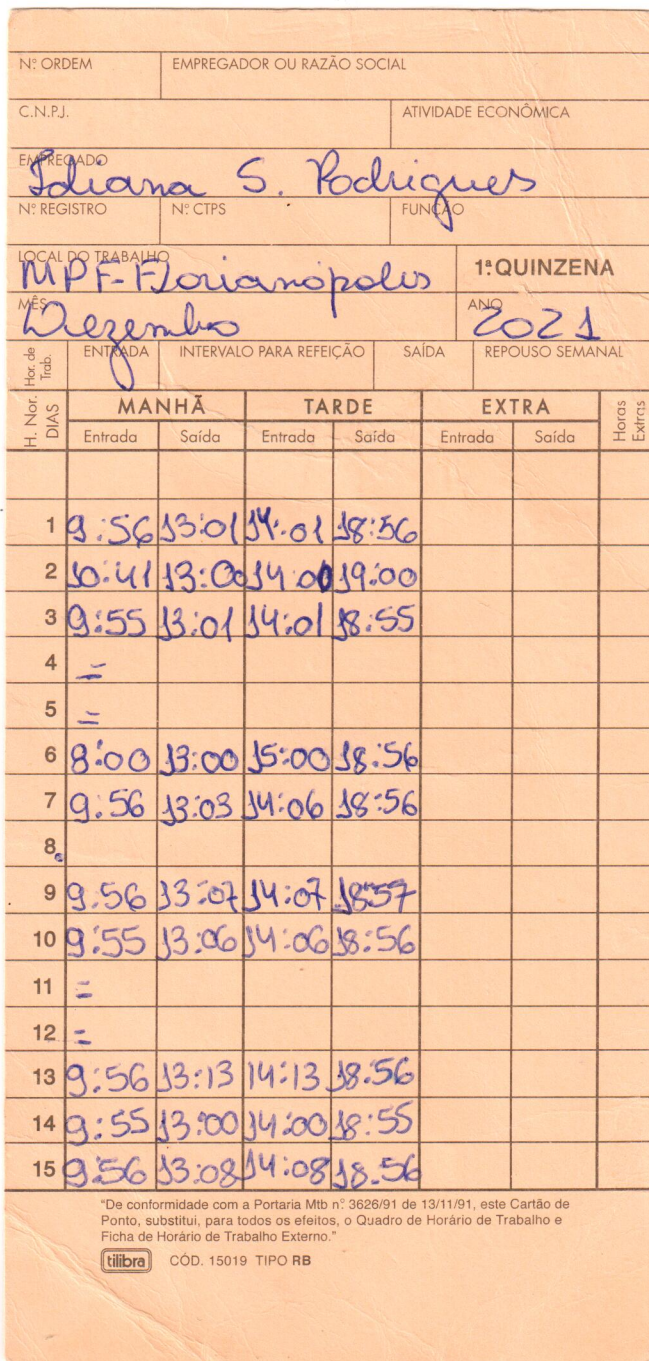 Nº ORDEM EMPREGADOR OU RAZÃO SOCIAL
C.N.P.J. ATIVIDADE ECONÔMICA
EMPREGADO
Idiana S. Rodrigues
Nº REGISTRO Nº CTPS FUNÇÃO
LOCAL DO TRABALHO
MPF-Florianópolis 1ª QUINZENA
MÊS ANO
Dezembro 2021
Hor. de Trab. ENTRADA INTERVALO PARA REFEIÇÃO SAÍDA REPOUSO SEMANAL
H. Nor. DIAS MANHÃ TARDE EXTRA Horas Extras
Entrada Saída Entrada Saída Entrada Saída
1 9:56 13:01 14:01 18:56
2 10:41 13:00 14:00 19:00
3 9:55 13:01 14:01 18:55
4 =
5 =
6 8:00 13:00 15:00 18:56
7 9:56 13:03 14:06 18:56
8
9 9:56 13:07 14:07 18:57
10 9:55 13:06 14:06 18:56
11 =
12 =
13 9:56 13:13 14:13 18:56
14 9:55 13:00 14:00 18:55
15 9:56 13:08 14:08 18:56
"De conformidade com a Portaria Mtb nº 3626/91 de 13/11/91, este Cartão de
Ponto, substitui, para todos os efeitos, o Quadro de Horário de Trabalho e
Ficha de Horário de Trabalho Externo."
tilibra CÓD. 15019 TIPO RB